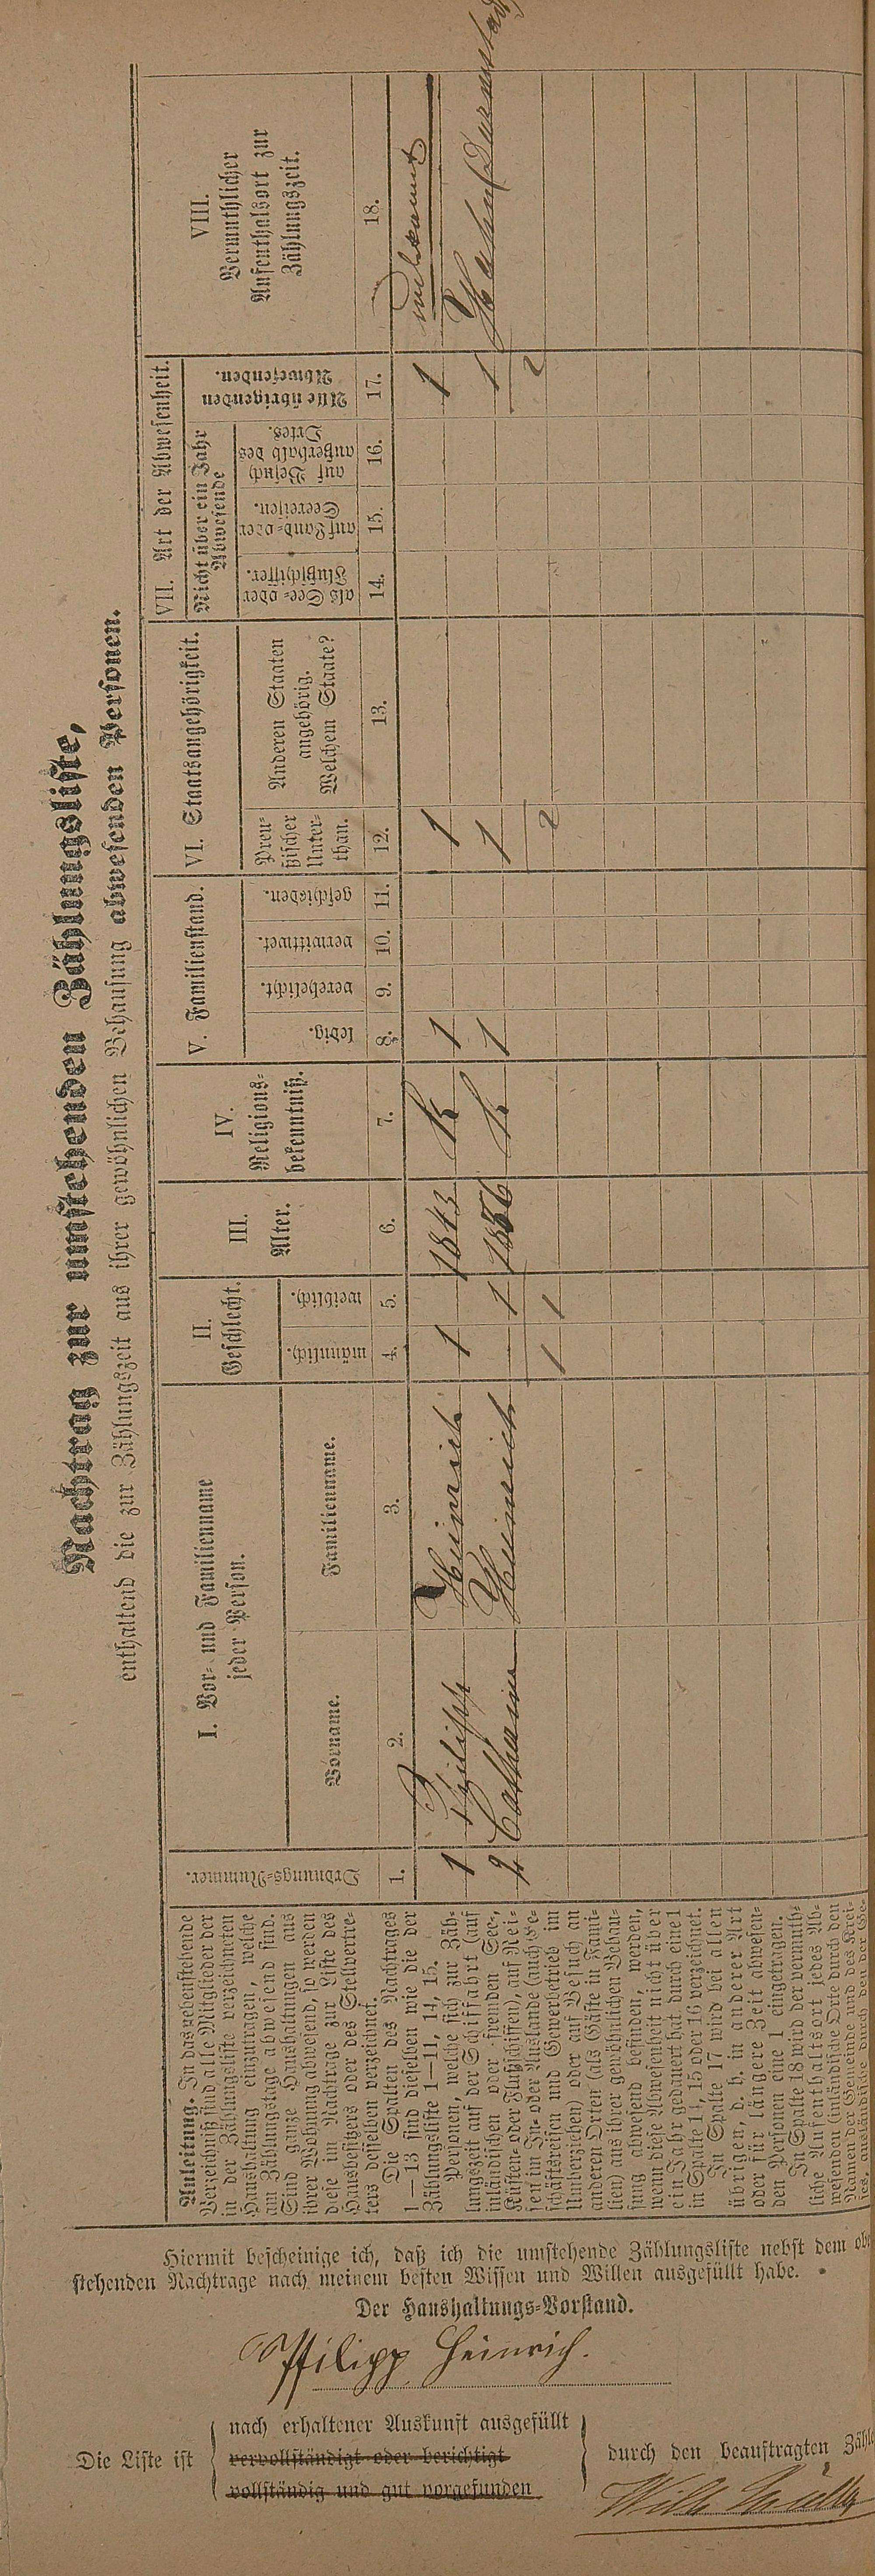 Nachtrag zur umstehenden Zählungsliste,
enthaltend die zur Zählungszeit aus ihrer gewöhnlichen Behausung abwesenden Personen.
Anleitung. In das nebenstehende
Verzeichniß sind alle Mitglieder der
in der Zählungsliste verzeichneten
Haushaltung einzutragen, welche
am Zählungstage abwesend sind.
Sind ganze Haushaltungen aus
ihrer Wohnung abwesend, so werden
diese im Nachtrage zur Liste des
Hausbesitzers oder des Stellvertre-
ters desselben verzeichnet.
Die Spalten des Nachtrages
1—13 sind dieselben wie die der
Zählungsliste 1—11, 14, 15.
Personen, welche sich zur Zäh-
lungszeit auf der Schiffahrt (auf
inländischen oder fremden See-,
Küsten- oder Flußschiffen), auf Rei-
sen im In- oder Auslande (auch Ge-
schäftsreisen und Gewerbetrieb im
Umherziehen) oder auf Besuch an
anderen Orten (als Gäste in Fami-
lien) aus ihrer gewöhnlichen Behau-
sung abwesend befinden, werden,
wenn diese Abwesenheit nicht über
ein Jahr gedauert hat durch eine 1
in Spalte 14, 15 oder 16 verzeichnet.
In Spalte 17 wird bei allen
übrigen, d. h. in anderer Art
oder für längere Zeit abwesen-
den Personen eine 1 eingetragen.
In Spalte 18 wird der vermuth-
liche Aufenthaltsort jedes Ab-
wesenden (inländische Orte durch den
Namen der Gemeinde und des Krei-
ses, ausländische durch den der Ge-
Ordnungs-Nummer.
1.
I. Vor- und Familienname
jeder Person.
Vorname.
2.
Familienname.
3.
II.
Geschlecht.
männlich.
4.
weiblich.
5.
III.
Alter.
6.
IV.
Religions-
bekenntniß.
7.
V. Familienstand.
ledig.
8.
verehelicht.
9.
verwittwet.
10.
geschieden.
11.
VI. Staatsangehörigkeit.
Preu-
ßischer
Unter-
than.
12.
Anderen Staaten
angehörig.
Welchem Staate?
13.
VII. Art der Abwesenheit.
Nicht über ein Jahr
Abwesende
als See- oder
Flußschiffer.
14.
auf Land- oder
Seereisen.
15.
auf Besuch
außerhalb des
Ortes.
16.
Alle übrigen
Abwesenden.
17.
VIII.
Vermuthlicher
Aufenthaltsort zur
Zählungszeit.
18.
1 Philipp Heinrich 1 1843 K 1 1 1 unbekannt
2 Catharine Heinrich 1 K 1 1 1
1 1 2 2
Hiermit bescheinige ich, daß ich die umstehende Zählungsliste nebst dem obe
stehenden Nachtrage nach meinem besten Wissen und Willen ausgefüllt habe.
Der Haushaltungs-Vorstand.
Philipp Heinrich.
Die Liste ist
nach erhaltener Auskunft ausgefüllt
vervollständigt oder berichtigt
vollständig und gut vorgefunden
durch den beauftragten Zähle